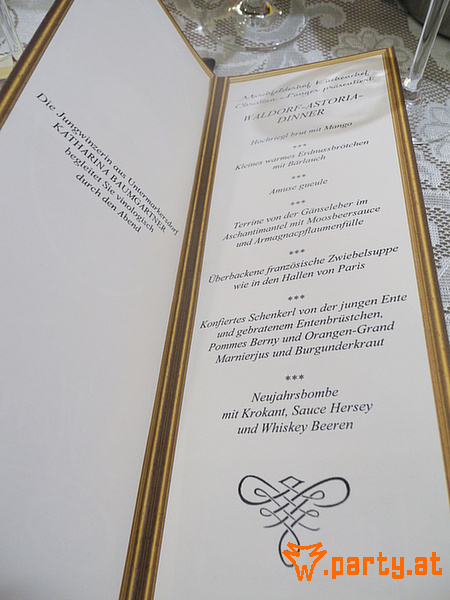 Die Jungwinzerin aus Untermarkersdorf
KATHARINA BAUMGARTNER
begleitet Sie vinologisch
durch den Abend
Marchfelderhof Küchenchef
Christian präsentiert:
WALDORF-ASTORIA-
DINNER
Hochriegl brut mit Mango
***
Kleines warmes Erdnussbrötchen
mit Bärlauch
***
Amuse gueule
***
Terrine von der Gänseleber im
Aschantimantel mit Moosbeersauce
und Armagnacpflaumenfülle
***
Überbackene französische Zwiebelsuppe
wie in den Hallen von Paris
***
Konfiertes Schenkerl von der jungen Ente
und gebratenem Entenbrüstchen,
Pommes Berny und Orangen-Grand
Marnierjus und Burgunderkraut
***
Neujahrsbombe
mit Krokant, Sauce Hersey
und Whiskey Beeren
party.at